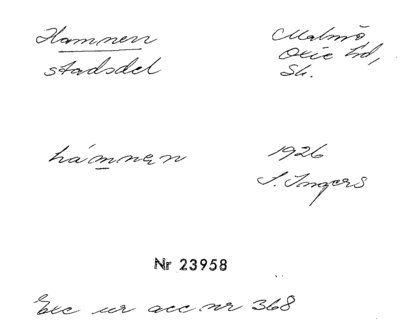 Hamnen
stadsdel
Malmö
Oxie hd,
Sk.
hámnęn
1926
I. Ingers
Nr 23958
Exc ur acc. nr 368